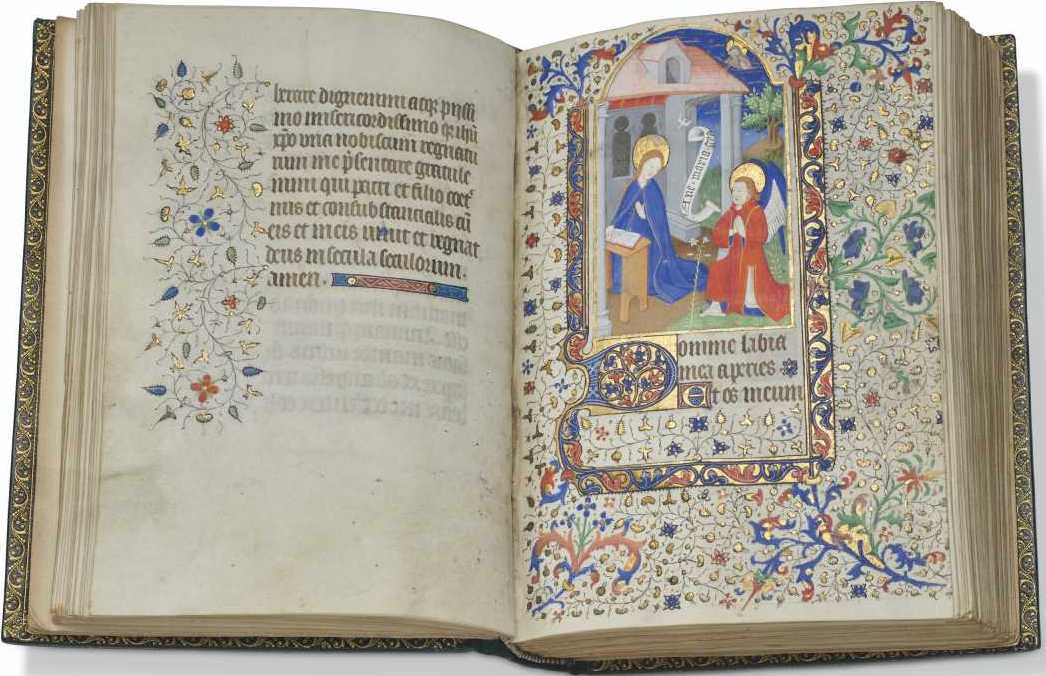 berare dignemini atqꝫ piissi
mo misericordissimo qꝫ ihũ
xp̃o vna nobiscum regnatu
rum me p̃sentare gratule
mini qui patri et filio coet̾
nus et consubstancialis cũ
eis et in eis viuit et regnat
deus in secula seculorum.
amen.
Aue maria gra
Domine labia
mea aperies
Et os meum